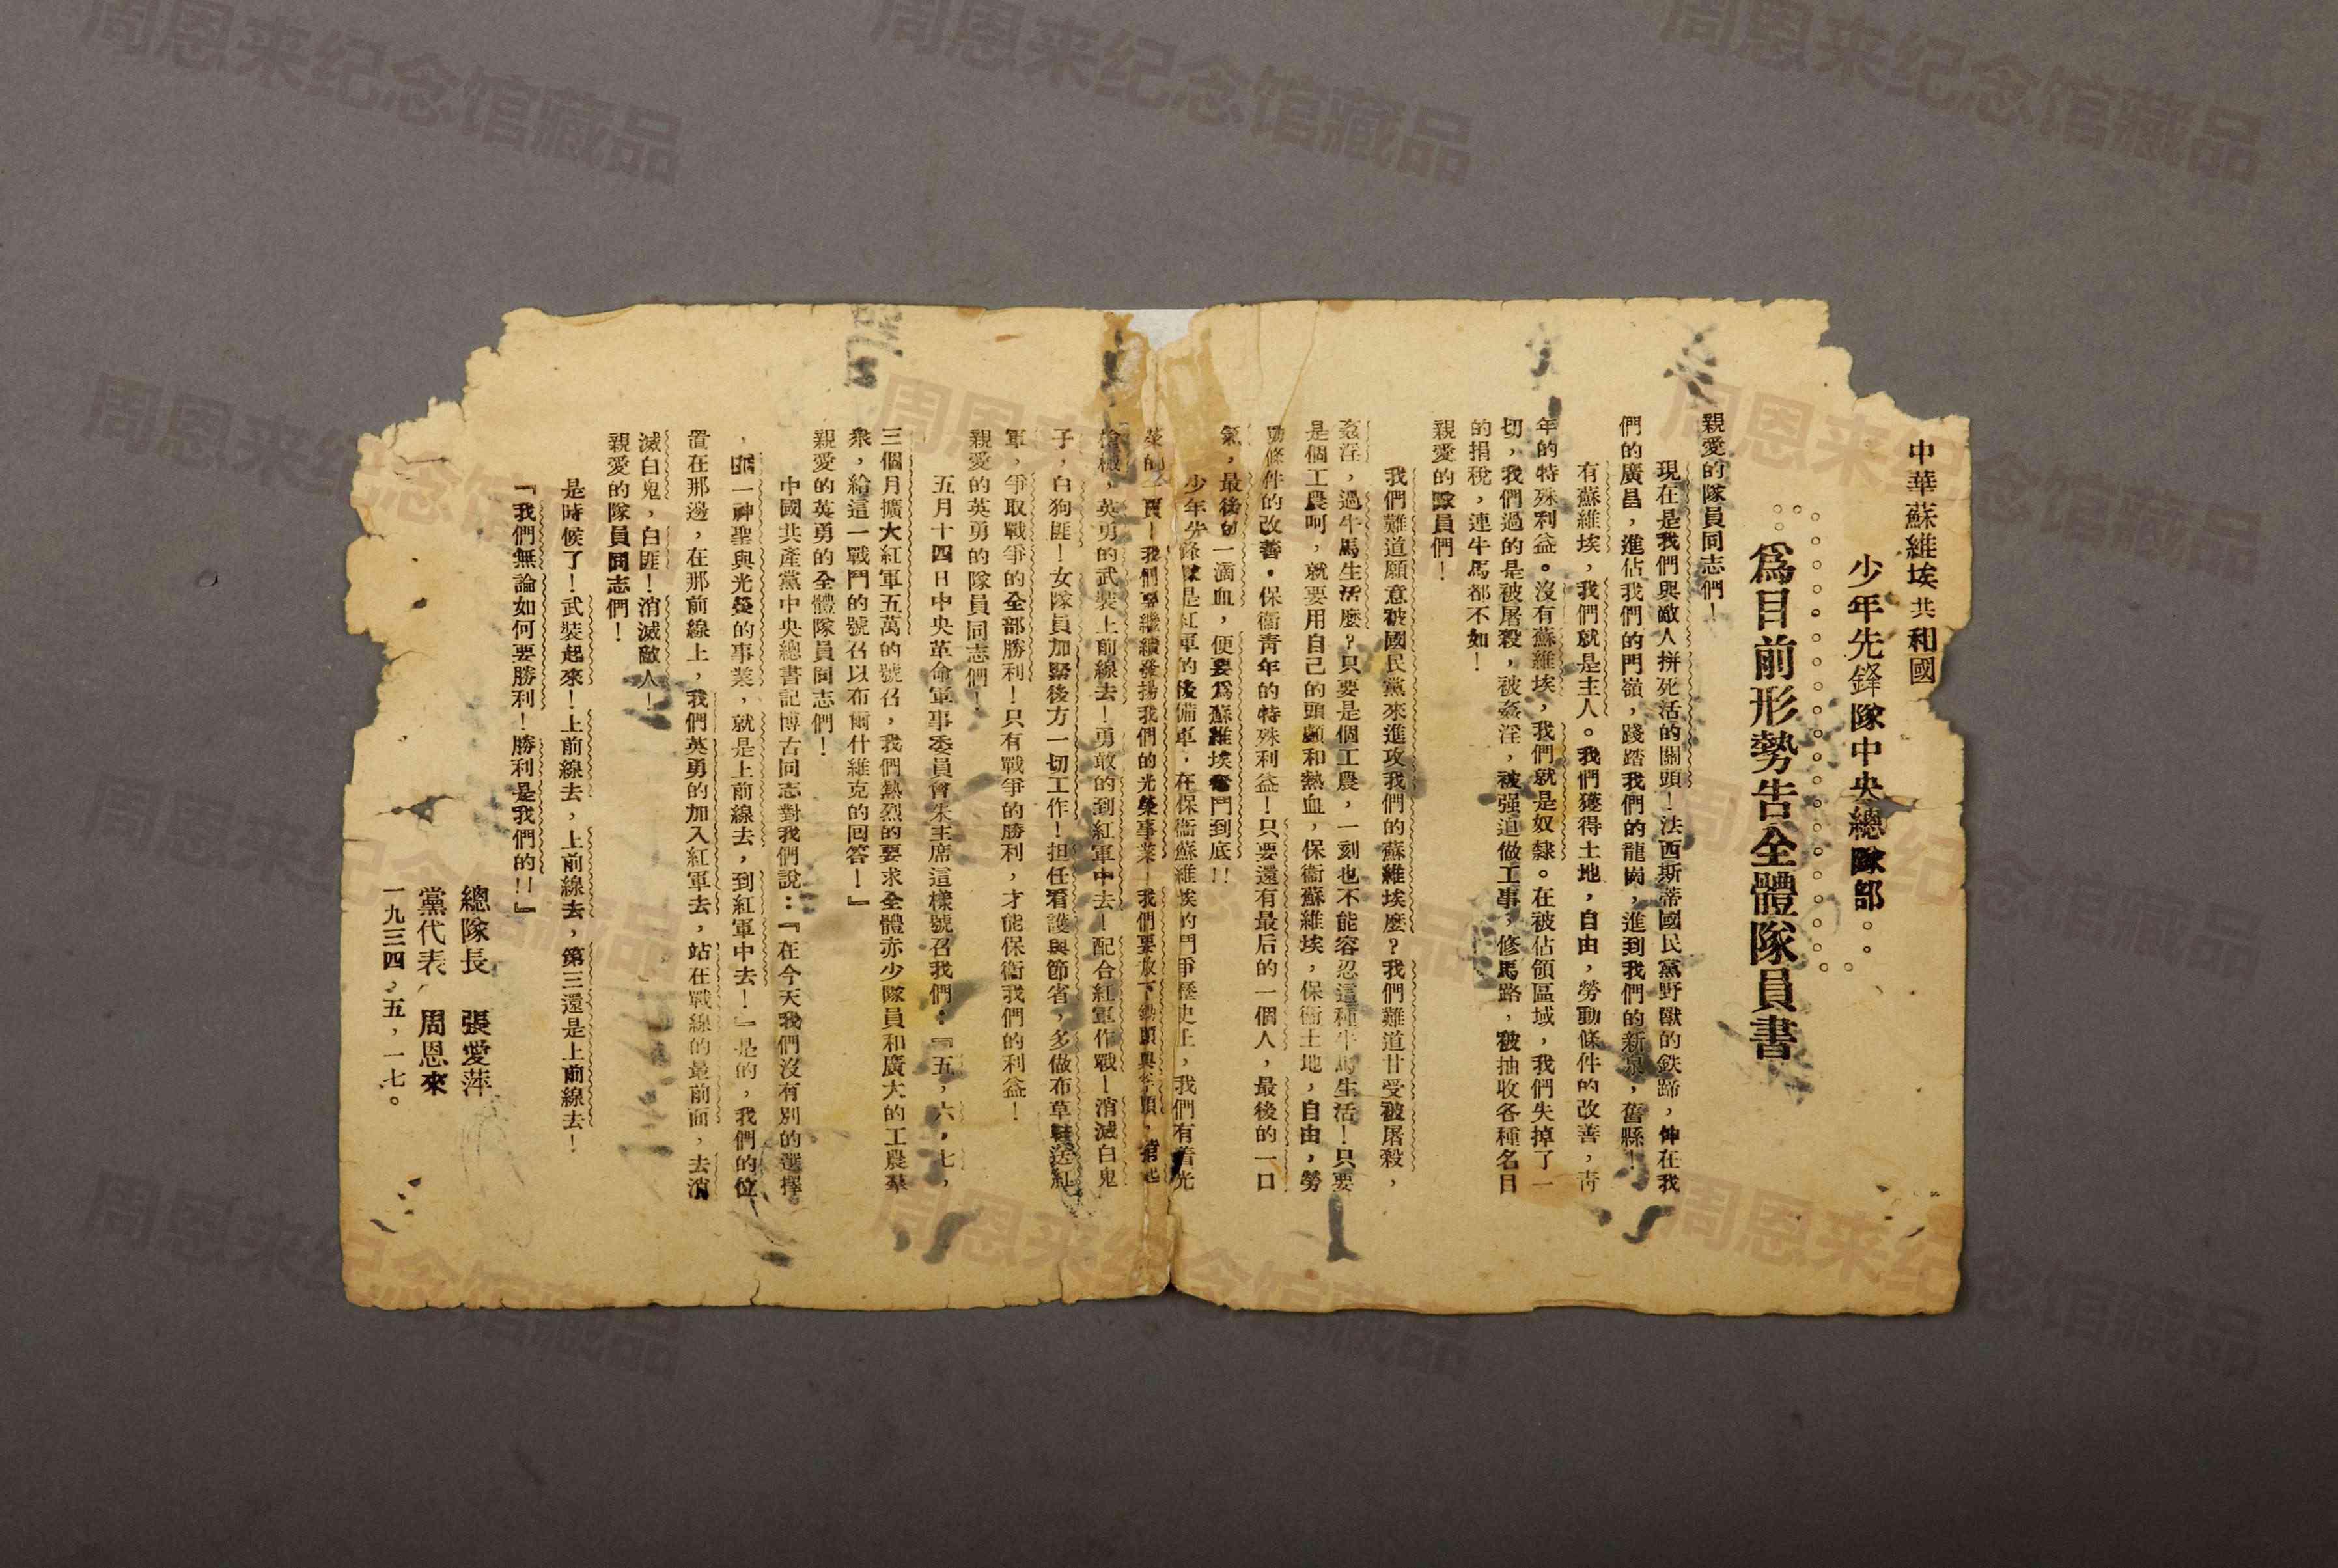 中華蘇維埃共和國
少年先鋒隊中央總隊部
爲目前形勢告全體隊員書
親愛的隊員同志們！
現在是我們與敵人拼死活的關頭！法西斯蒂國民黨野獸的鉄蹄，伸在我
們的廣昌，進佔我們的門嶺，踐踏我們的龍崗，進到我們的新泉，舊縣！
有蘇維埃，我們就是主人。我們獲得土地，自由，勞動條件的改善，青
年的特殊利益。沒有蘇維埃，我們就是奴隸。在被佔領區域，我們失掉了一
切，我們過的是被屠殺，被姦淫，被强迫做工事，修馬路，被抽收各種名目
的捐稅，連牛馬都不如！
親愛的隊員們！
我們難道願意被國民黨來進攻我們的蘇維埃麽？我們難道甘受被屠殺，
姦淫，過牛馬生活麽？只要是個工農，一刻也不能容忍這種牛馬生活！只要
是個工農呵，就要用自己的頭顱和熱血，保衞蘇維埃，保衞土地，自由，勞
動條件的改善。保衞青年的特殊利益！只要還有最后的一個人，最後的一口
氣，最後的一滴血，便要爲蘇維埃奮鬥到底！！
少年先鋒隊是紅軍的後備軍，在保衞蘇維埃的鬥爭歷史上，我們有着光
榮的一頁！我們要繼續發揚我們的光榮事業！我們要放下鋤頭與斧頭，揹起
槍械，英勇的武裝上前線去！勇敢的到紅軍中去！配合紅軍作戰！消滅白鬼
子，白狗匪！女隊員加緊後方一切工作！担任看護與節省，多做布草鞋送紅
軍，爭取戰爭的全部勝利！只有戰爭的勝利，才能保衞我們的利益！
親愛的英勇的隊員同志們！
五月十四日中央革命軍事委員會朱主席這樣號召我們：『五，六，七，
三個月擴大紅軍五萬的號召，我們熱烈的要求全體赤少隊員和廣大的工農羣
衆，給這一戰鬥的號召以布爾什維克的回答！』
親愛的英勇的全體隊員同志們！
中國共產黨中央總書記博古同志對我們說：『在今天我們沒有別的選擇
，一神聖與光榮的事業，就是上前線去，到紅軍中去！』是的，我們的位
置在那邊，在那前線上，我們英勇的加入紅軍去，站在戰線的最前面，去消
滅白鬼，白匪！消滅敵人！
親愛的隊員同志們！
是時候了！武裝起來！上前線去，上前線去，第三還是上前線去！
『我們無論如何要勝利！勝利是我們的！！』
總隊長　張愛萍
黨代表　周恩來
一九三四，五，一七。
周恩来纪念馆藏品
周恩来纪念馆藏品
周恩来纪念馆藏品